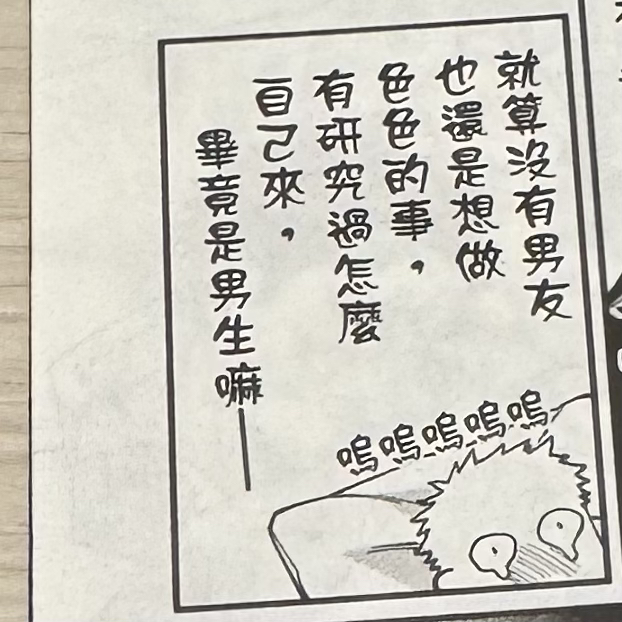 就算沒有男友
也還是想做
色色的事，
有研究過怎麼
自己來，
畢竟是男生嘛——
嗚嗚嗚嗚嗚